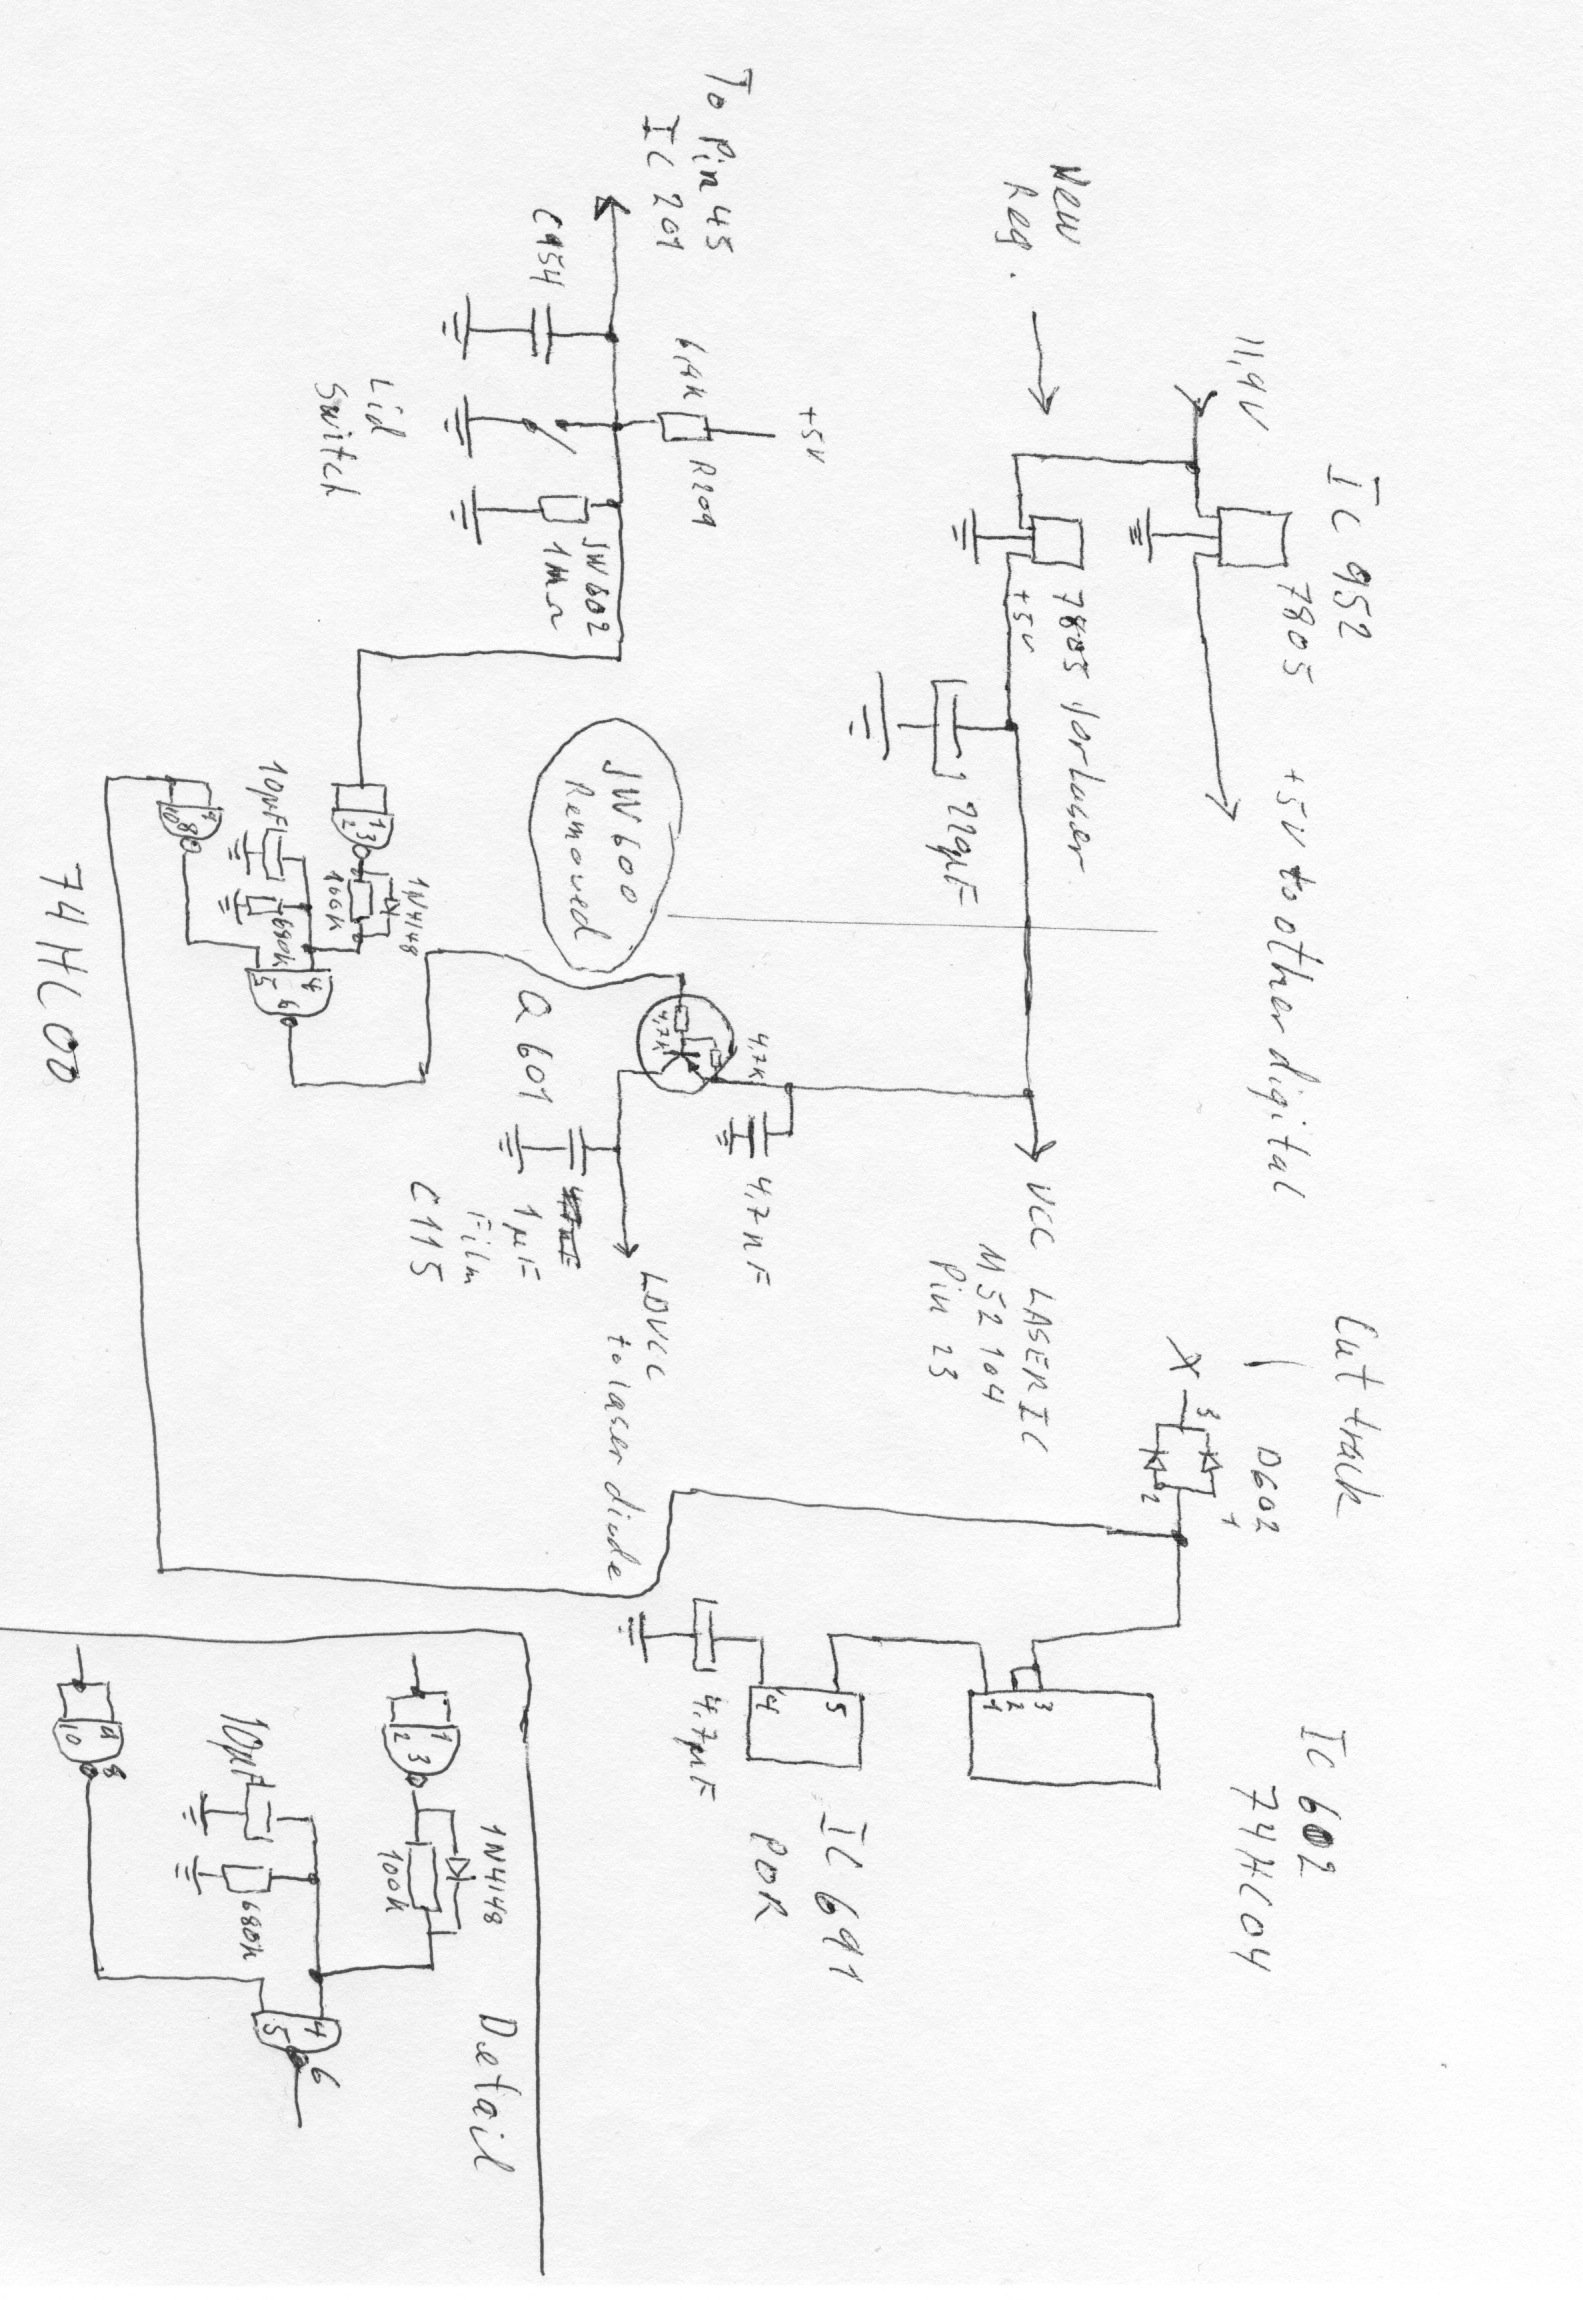 IC 952
7805
11,9V
+5V to other digital
New
Reg.
7805 for Laser
+5V
220µF
VCC LASER IC
M52104
Pin 23
Cut track
D602
X
3
1
2
IC 602
74HC04
3
2
1
IC 691
POR
5
4
4,7µF
To Pin 45
IC 201
C954
Lid
Switch
+5V
R209
JW602
1MΩ
JW600
Removed
4,7K
4,7K
4,7nF
Q601
1µF
Film
C115
LDVCC
to laser diode
1
2
3
1N4148
100k
10µF
680k
9
10
8
4
5
6
74HC00
Detail
1
2
3
1N4148
100k
10µF
680k
9
10
8
4
5
6